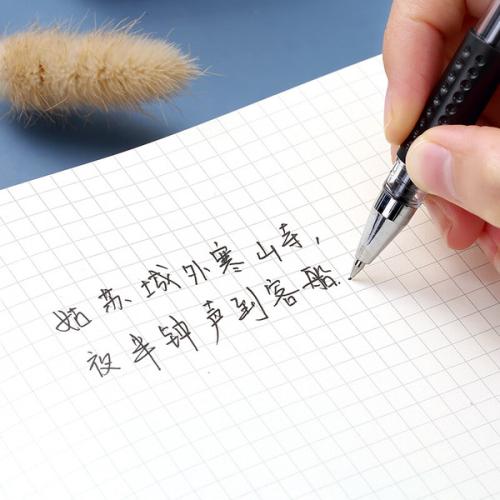 姑苏城外寒山寺,
夜半钟声到客船.